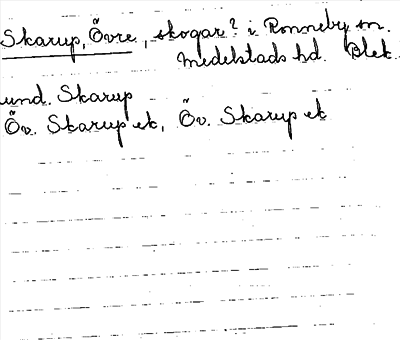 Skarup, Övre, skogar? i Ronneby sn.
Medelstads hd. Blek.
und. Skarup
Öv. Skarup ek, Öv. Skarup ek